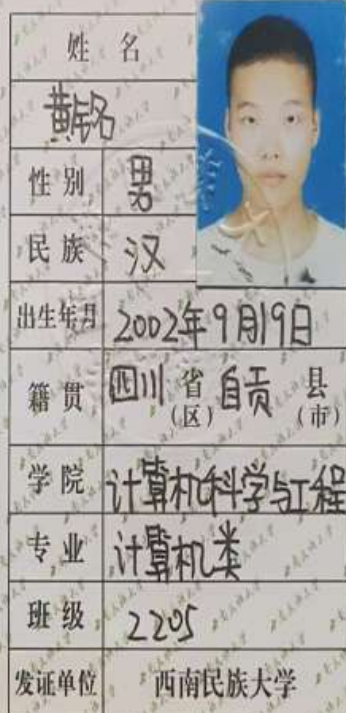 姓 名
黄铭
性别 男
民族 汉
出生年月 2002年9月19日
籍贯 四川 省(区) 自贡 县(市)
学院 计算机科学与工程
专业 计算机类
班级 2205
发证单位 西南民族大学